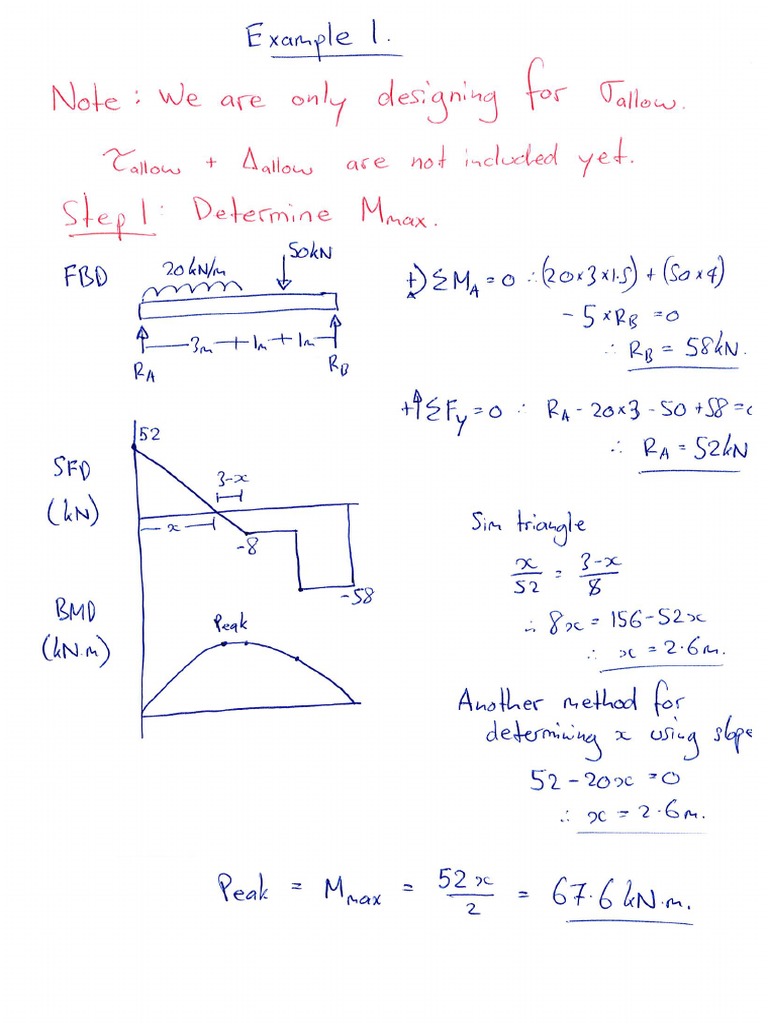 Example 1.
Note: We are only designing for σallow.
τallow + Δallow are not included yet.
Step 1: Determine Mmax.
FBD
20kN/m
50kN
3m + 1m + 1m
RA
RB
+) ΣMA = 0 ∴ (20×3×1.5) + (50×4)
- 5×RB = 0
∴ RB = 58kN.
+↑ΣFy = 0 ∴ RA - 20×3 - 50 + 58 = 0
∴ RA = 52kN
SFD
(kN)
52
3-x
x
-8
-58
Sim triangle
x/52 = 3-x/8
∴ 8x = 156-52x
∴ x = 2.6m.
BMD
(kN.m)
Peak
Another method for
determining x using slope
52-20x = 0
∴ x = 2.6m.
Peak = Mmax = 52x/2 = 67.6kN.m.